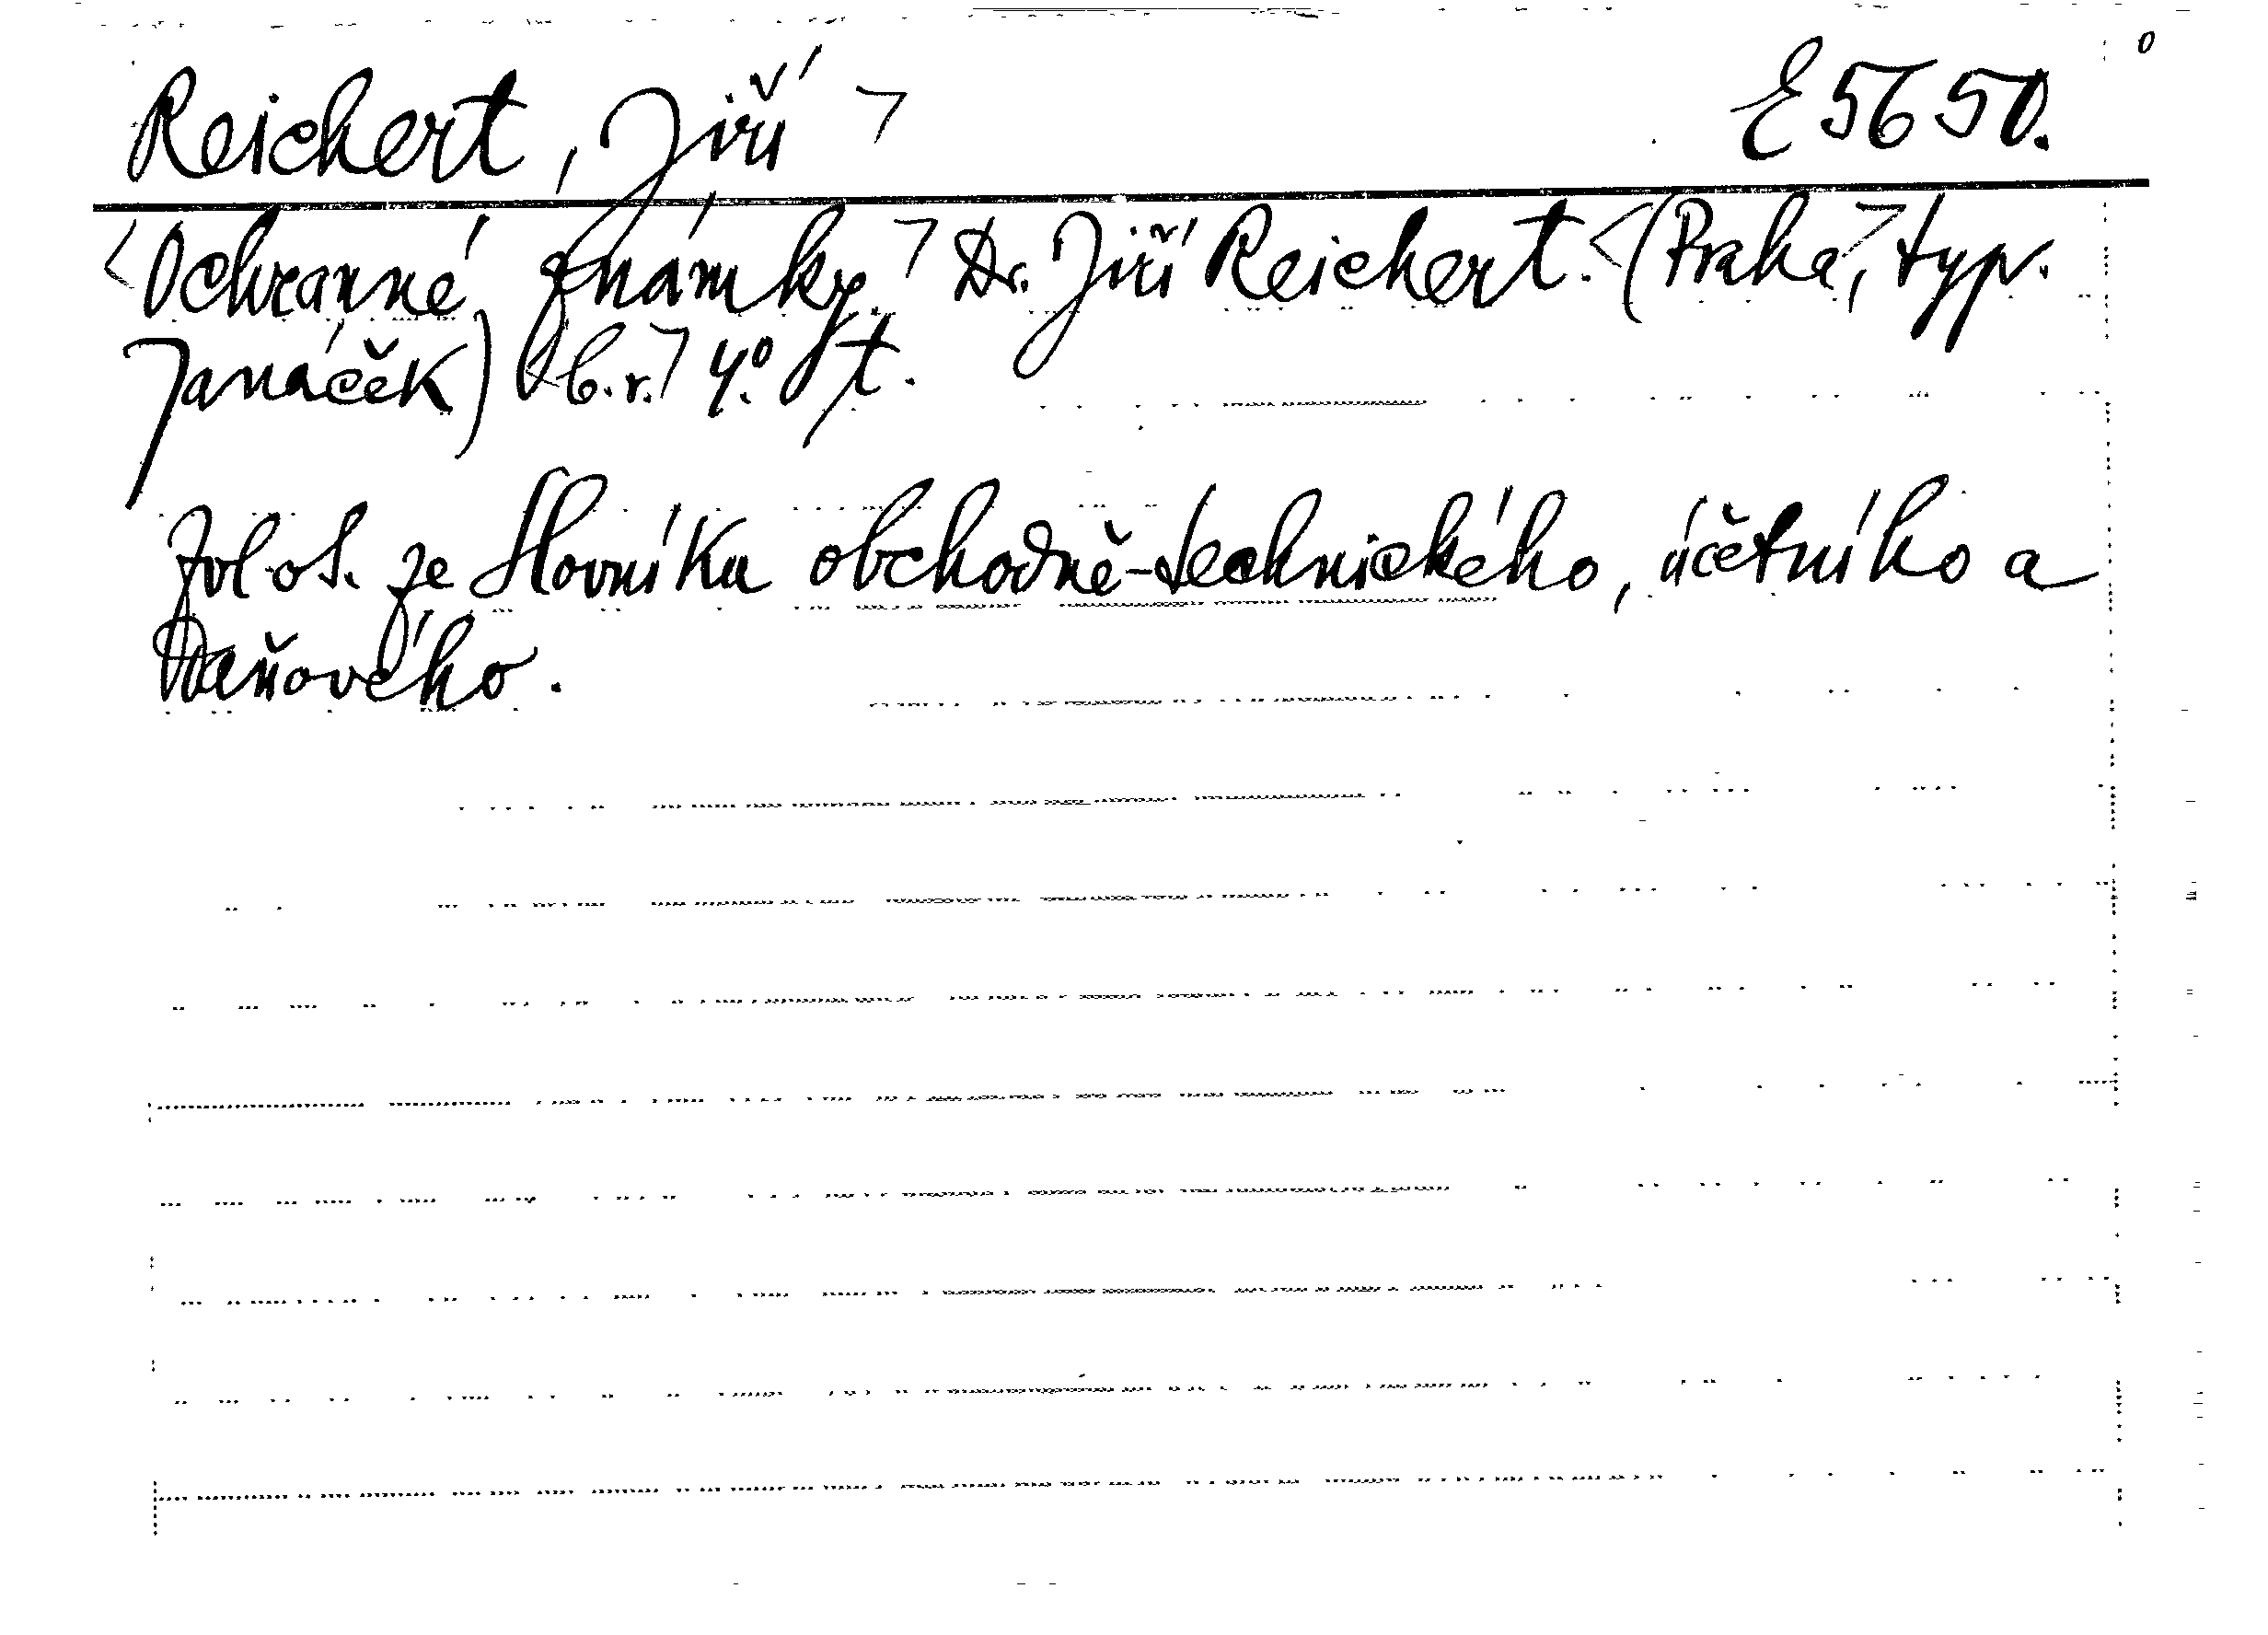 Reichert, Jiří > E 5650.
<Ochranné známky.> Dr. Jiří Reichert. <(Praha>, typ.
Janáček) <b.r.> 4.° Jt.
Zvl. ot. ze Slovníku obchodně-technického, účetního a
daňového.